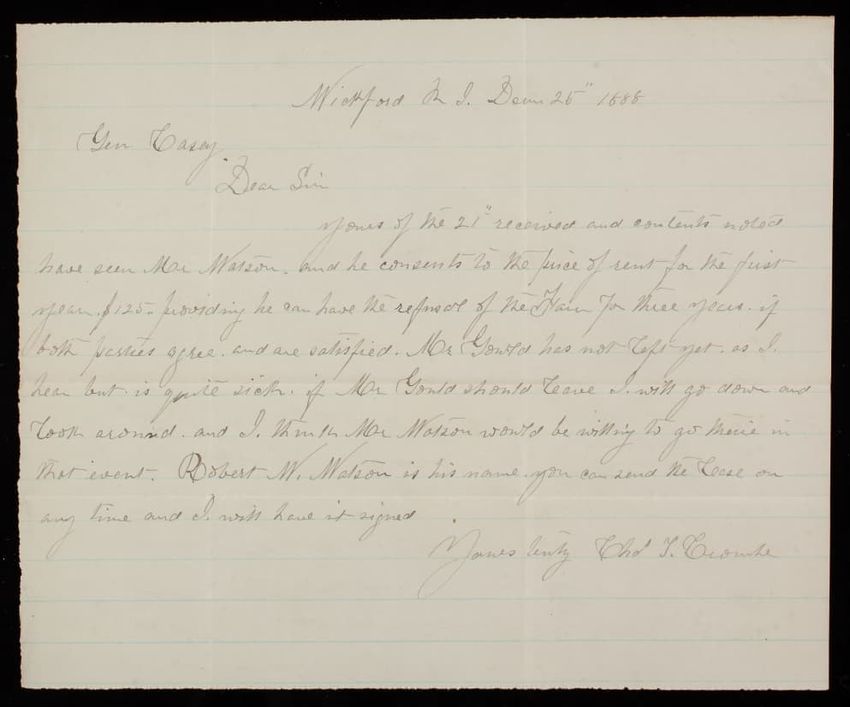 Wickford R I. Decm 25" 1888
Gen Casey.
Dear Sir
Yours of the 21" received and contents noted
have seen Mr Watson. and he consents to the price of rent for the first
year. $125. providing he can have the refusal of the Farm for three years. if
both parties agree. and are satisfied. Mr Gould has not left yet. as I.
hear but is quite sick. if Mr Gould should leave I. will go down and
look around. and I. think Mr Watson would be willing to go there in
that event. Robert W. Watson is his name. you can send the lease on
any time and I. will have it signed
Yours truly Thos T.